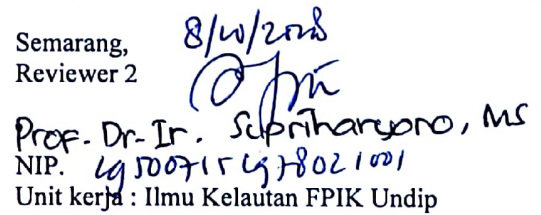 Semarang, 8/10/2018
Reviewer 2
Prof. Dr. Ir. Supriharyono, MS
NIP. 19500715 197802 1 001
Unit kerja : Ilmu Kelautan FPIK Undip